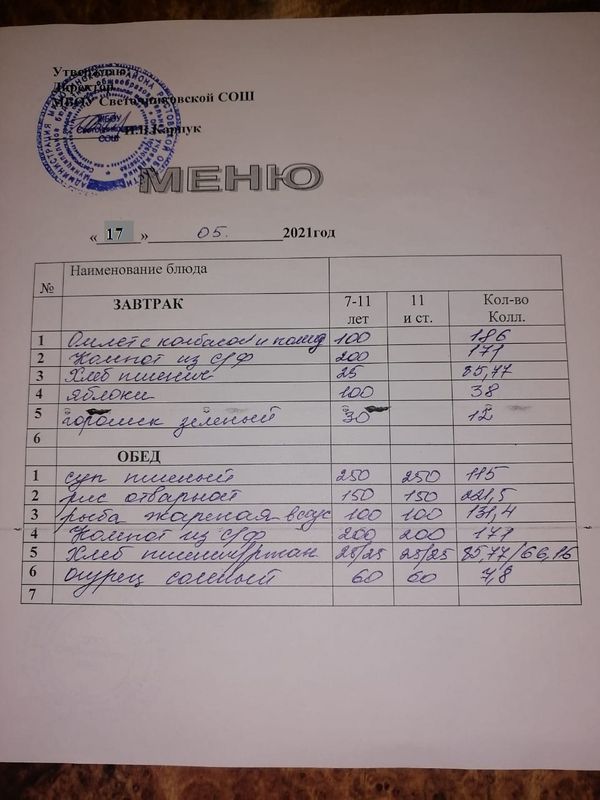 Утверждаю
Директор
МБОУ Светочниковской СОШ
Карпук
МЕНЮ
« 17 » 05. 2021год
№ Наименование блюда
ЗАВТРАК 7-11 лет 11 и ст. Кол-во Колл.
1 Омлет с колбасой и помид 100 186
2 Компот из С/Ф 200 171
3 Хлеб пшенич 25 85,77
4 яблоки 100 38
5 горошек зеленый 30 12
6
ОБЕД
1 суп пшеный 250 250 115
2 рис отварной 150 150 221,5
3 рыба жареная в соус 100 100 131,4
4 Компот из С/Ф 200 200 171
5 Хлеб пшен/ржан 25/25 25/25 85,77/66,16
6 огурец соленый 60 60 7,8
7